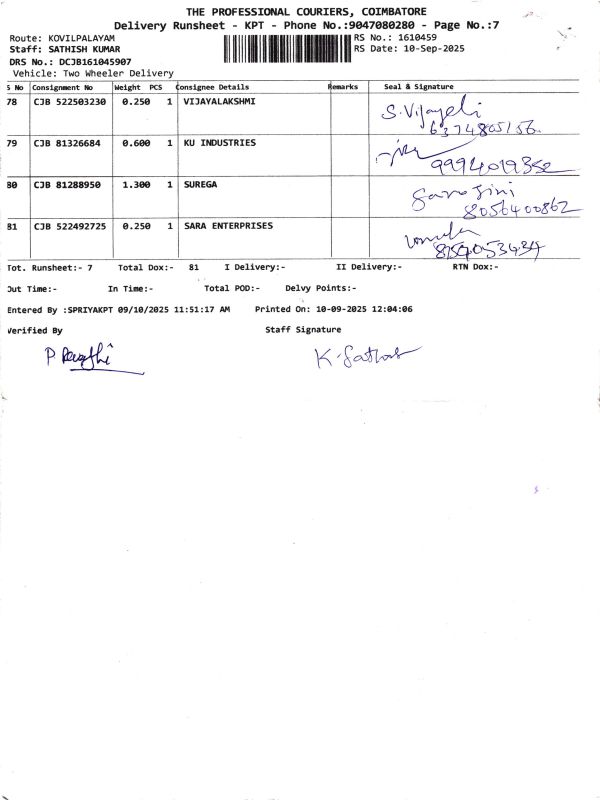 THE PROFESSIONAL COURIERS, COIMBATORE
Delivery Runsheet - KPT - Phone No.:9047080280 - Page No.:7
Route: KOVILPALAYAM RS No.: 1610459
Staff: SATHISH KUMAR RS Date: 10-Sep-2025
DRS No.: DCJB161045907
Vehicle: Two Wheeler Delivery
S No Consignment No Weight PCS Consignee Details Remarks Seal & Signature
78 CJB 522503230 0.250 1 VIJAYALAKSHMI S.Vijayeli
6374805156
79 CJB 81326684 0.600 1 KU INDUSTRIES
9994019352
80 CJB 81288950 1.300 1 SUREGA Sarojini
8056400862
81 CJB 522492725 0.250 1 SARA ENTERPRISES
Tot. Runsheet:- 7 Total Dox:- 81 I Delivery:- II Delivery:- RTN Dox:-
Out Time:- In Time:- Total POD:- Delvy Points:-
Entered By :SPRIYAKPT 09/10/2025 11:51:17 AM Printed On: 10-09-2025 12:04:06
Verified By Staff Signature
K. Sathish